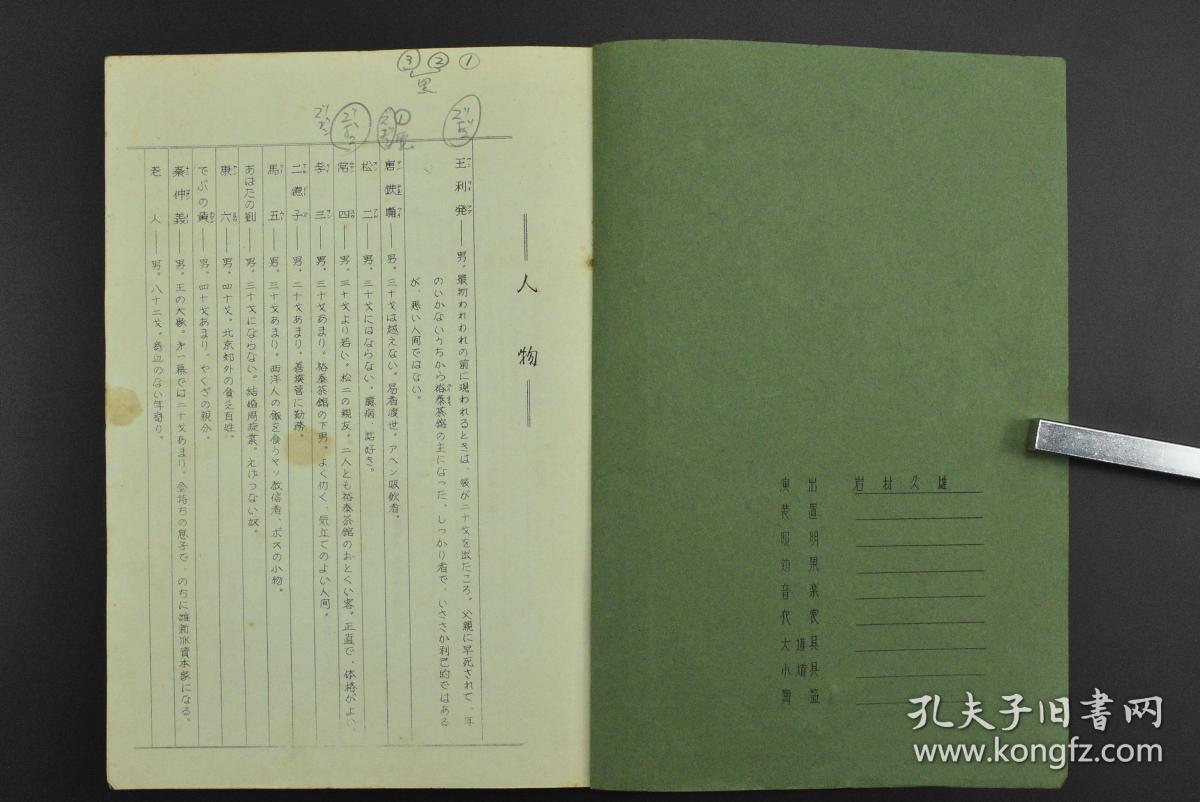 ③ ② ①
黒
人物
王利発――男。最初われわれの前に現われるときは、彼が二十才を出たころ。父親に早死されて、年
のいかないうちから裕泰茶館の主になった。しっかり者で、いささか利己的ではある
が、悪い人间ではない。
唐鉄嘴――男。三十才は越えない。易者渡世。アヘン吸飲者。
松二――男、三十才にはならない、臆病、話好き。
常四――男。三十才より若い。松二の親友。二人とも裕泰茶館のおとくい客。正直で、体格がよい。
李三――男、三十才あまり。裕泰茶館の下男。よく仂く、気立てのよい人间。
二徳子――男。二十才あまり。善撲営に勤務。
馬五――男、三十才あまり。西洋人の飯を食うヤソ教信者、ボスの小物。
あばたの劉――男。三十才にならない。結婚周旋業。えげつない奴。
康六――男。四十才、北京郊外の貧乏百姓。
でぶの黄――男。四十才あまり、やくざの親分。
秦仲義――男。王の大家。第一幕では二十才あまり。金持ちの息子で、のちに維新派資本家になる。
老人――男。八十二才。寄辺のない年寄り。
演出 岩村久雄
装置
照明
効果
音楽
衣裳
大道具
小道具
舞監
孔夫子旧书网
www.kongfz.com